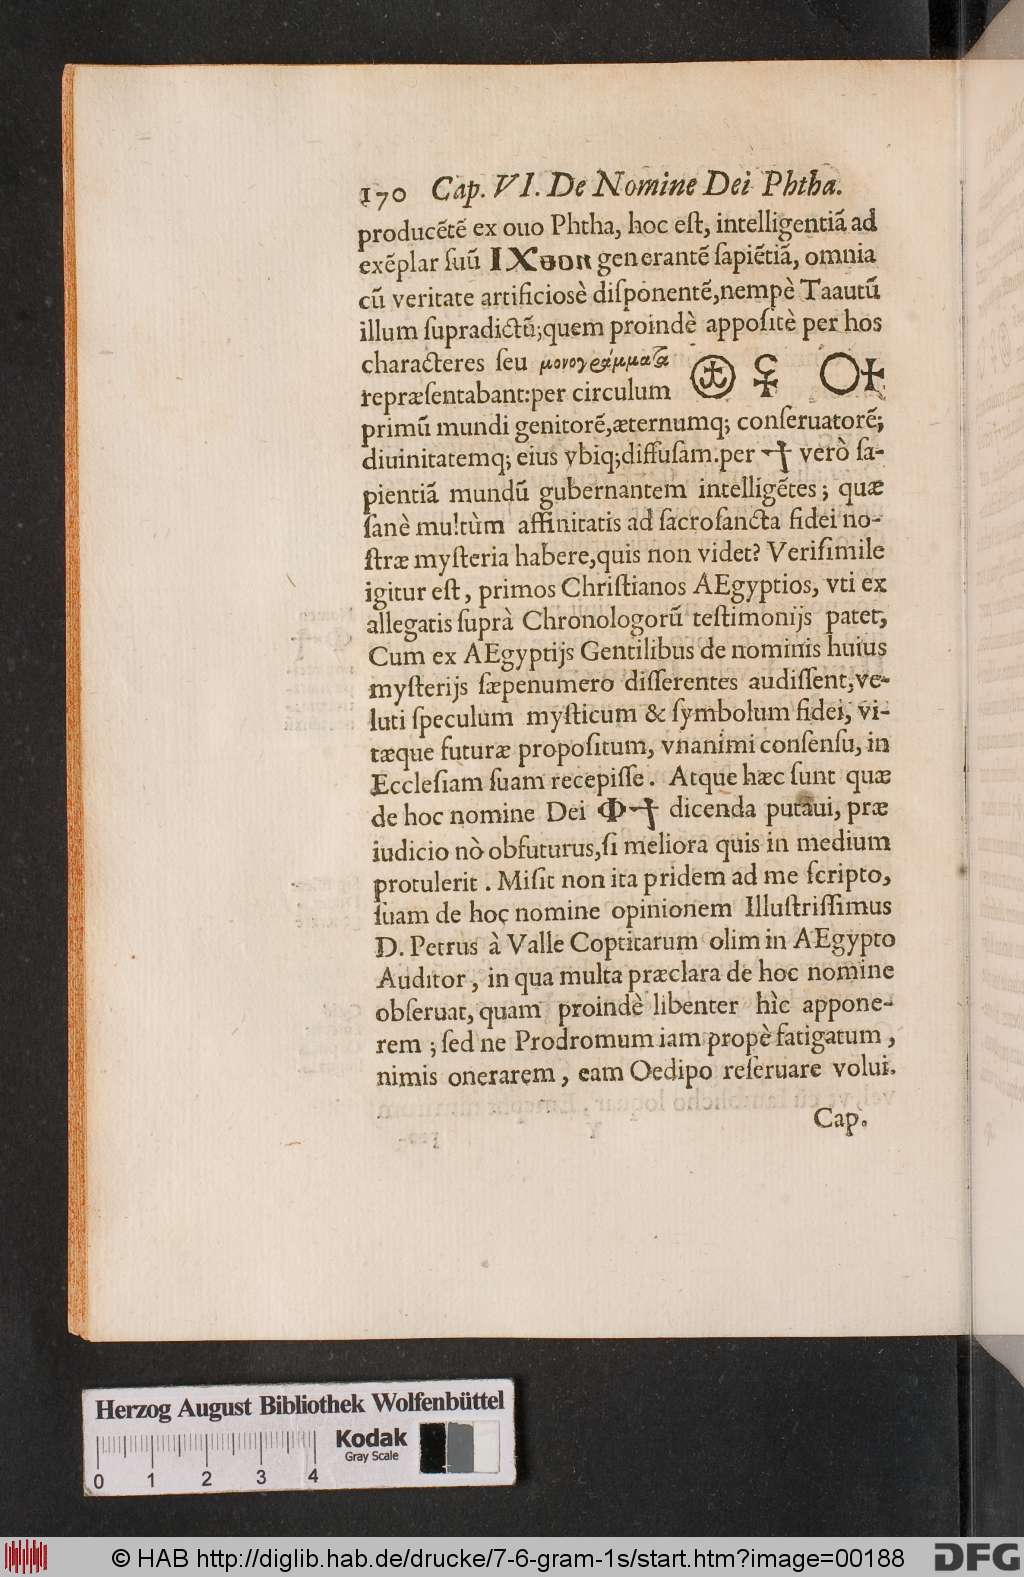 170 Cap. VI. De Nomine Dei Phtha.
producẽtẽ ex ouo Phtha, hoc eſt, intelligentiã ad
exẽplar ſuũ generantẽ ſapiẽtiã, omnia
cũ veritate artificiosè diſponentẽ, nempè Taautũ
illum ſupradictũ; quem proindè appoſitè per hos
characteres ſeu μονογράμματα
repræſentabant: per circulum
primũ mundi genitorẽ, æternumq; conſeruatorẽ;
diuinitatemq; eius vbiq; diffuſam. per verò ſa-
pientiã mundũ gubernantem intelligẽtes; quæ
ſanè multùm affinitatis ad ſacroſancta fidei no-
ſtræ myſteria habere, quis non videt? Veriſimile
igitur eſt, primos Chriſtianos AEgyptios, vti ex
allegatis ſuprà Chronologorũ teſtimonijs patet,
Cum ex AEgyptijs Gentilibus de nominis huius
myſterijs ſæpenumero diſſerentes audiſſent, ve-
luti ſpeculum myſticum & ſymbolum fidei, vi-
tæque futuræ propoſitum, vnanimi conſenſu, in
Eccleſiam ſuam recepiſſe. Atque hæc ſunt quæ
de hoc nomine Dei Ⲫϯ dicenda putaui, præ
iudicio nò obfuturus, ſi meliora quis in medium
protulerit. Miſit non ita pridem ad me ſcripto,
ſuam de hoc nomine opinionem Illuſtriſſimus
D. Petrus à Valle Coptitarum olim in AEgypto
Auditor, in qua multa præclara de hoc nomine
obſeruat, quam proindè libenter hìc appone-
rem; ſed ne Prodromum iam propè fatigatum,
nimis onerarem, eam Oedipo reſeruare volui.
Cap.
Herzog August Bibliothek Wolfenbüttel
Kodak
Gray Scale
0 1 2 3 4
© HAB http://diglib.hab.de/drucke/7-6-gram-1s/start.htm?image=00188
DFG